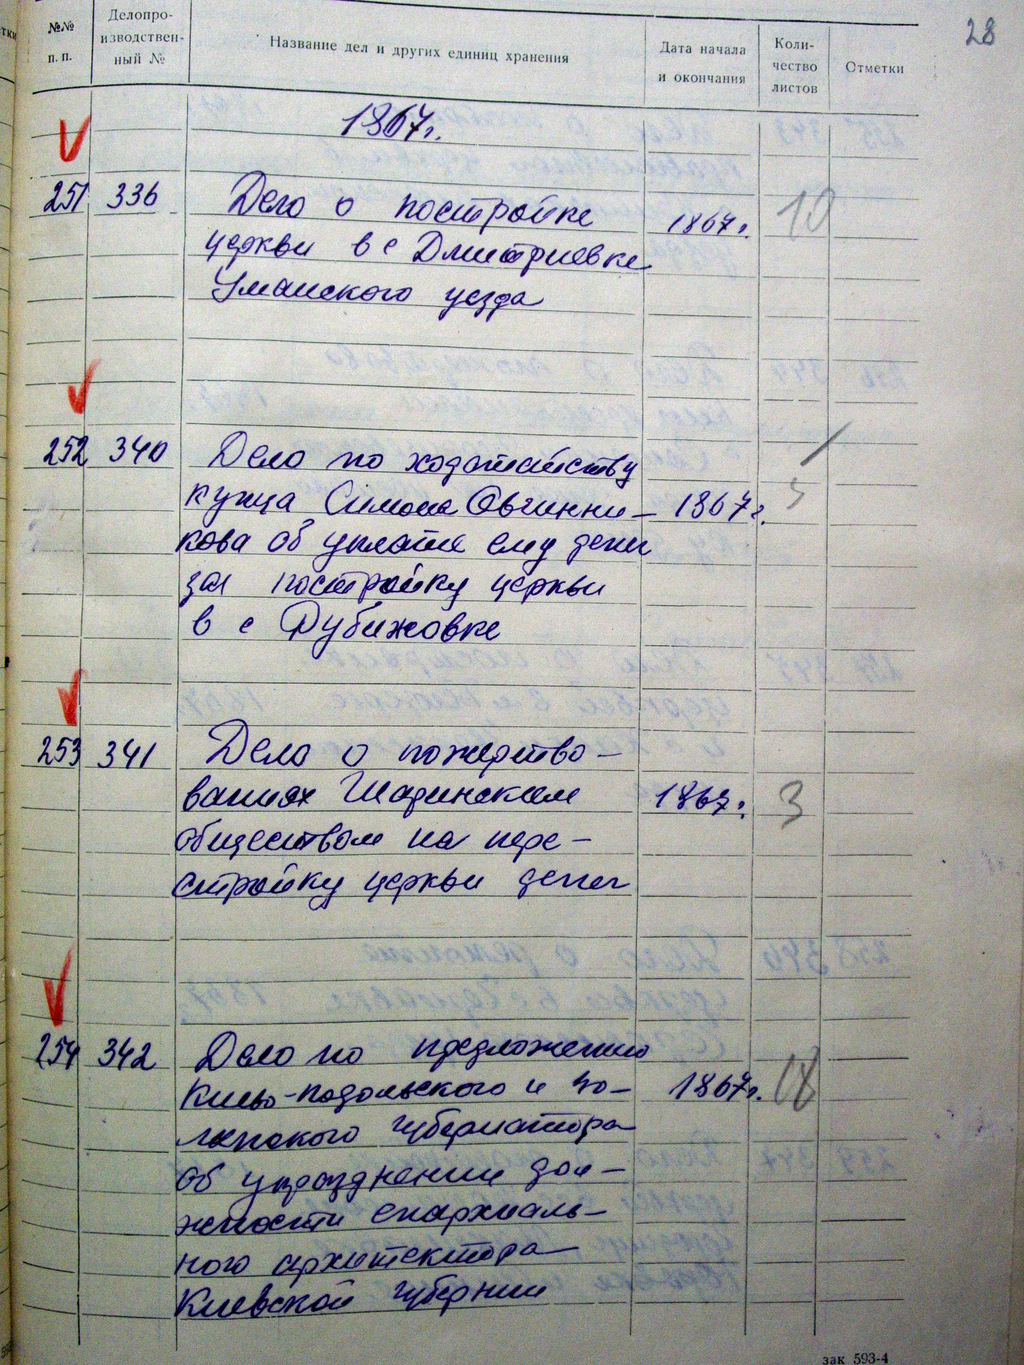 28
№№ п. п.
Делопро-изводствен-ный №
Название дел и других единиц хранения
Дата начала и окончания
Коли-чество листов
Отметки
1867г.
251 336 Дело о постройке 1867г. 10
церкви в с Дмитриевке
Уманского уезда
252 340 Дело по ходатайству
купца Симона Овчинни- 1867г. 5
кова об уплате ему денег
за постройку церкви
в с Дубижовке
253 341 Дело о пожертво-
ваниях Шаринским 1867г. 3
обществом на пере-
стройку церкви денег
254 342 Дело по предложению
Киево-подольского и Во- 1867г. 18
лынского губернатора
об упразднении дол-
жности епархиаль-
ного архитектора
Киевской губернии
зак 593-4